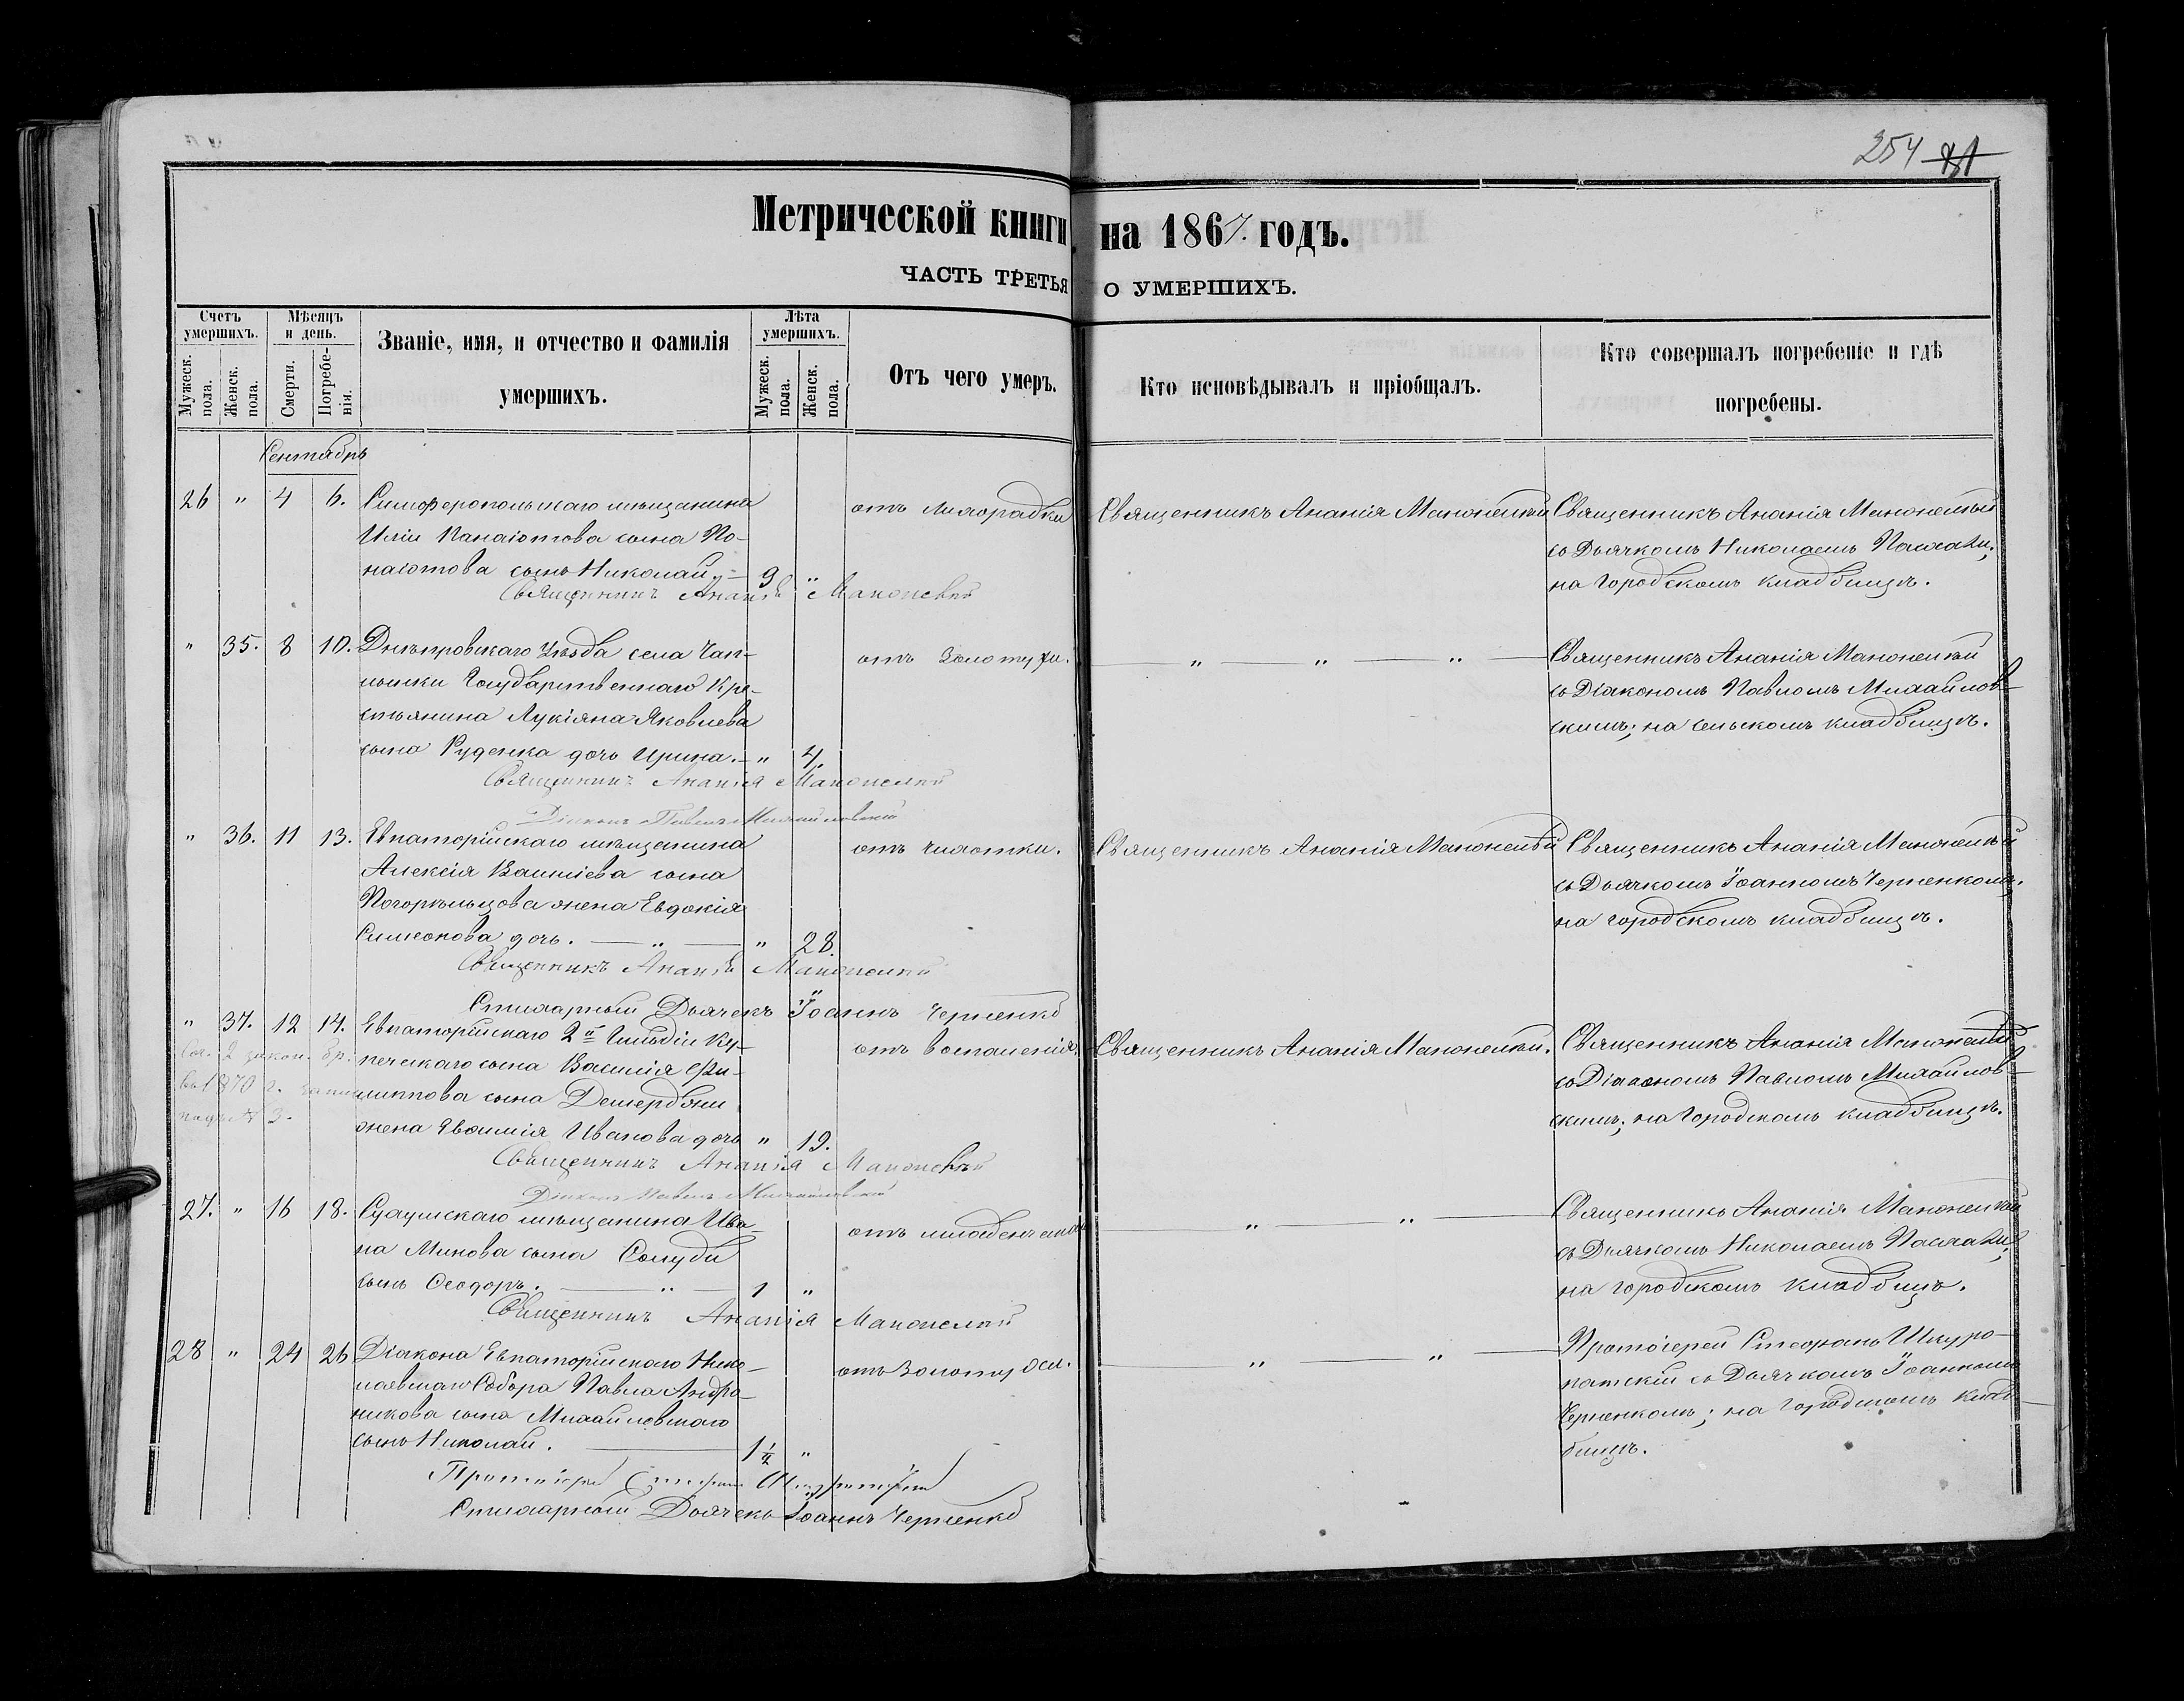 254 81
Метрической книги на 1867. годъ.
ЧАСТЬ ТРЕТЬЯ О УМЕРШИХЪ.
Счетъ умершихъ.
Мужеск. пола.
Женск. пола.
Мѣсяцъ и день.
Смерти.
Погребенія.
Званіе, имя, и отчество и фамилія
умершихъ.
Лѣта умершихъ.
Мужеск. пола.
Женск. пола.
Отъ чего умеръ.
Кто исповѣдывалъ и пріобщалъ.
Кто совершалъ погребеніе и гдѣ
погребены.
Сентябрь
26 " 4 6. Симферопольскаго мѣщанина
Иліи Панаіотова сына По-
наіотова сынъ Николай. — 9 "
отъ лихорадки
Священникъ Ананія Маконскій
Священникъ Ананія Маконскій
съ Дьячкомъ Николаемъ
на городскомъ кладбищѣ.
Священникъ Ананія Маконскій
" 35. 8 10. Днѣпровскаго Уѣзда села Чап-
лынки Государственнаго Кре-
стьянина Лукіяна Яковлева
сына Руденка дочь Ирина. — " 4.
отъ золотухи.
— " — " — " —
Священникъ Ананія Маконскій
съ Діакономъ Павломъ Михайлов-
скимъ; на сельскомъ кладбищѣ.
Священникъ Ананія Маконскій
Діаконъ Павелъ Михайловскій
" 36. 11 13. Евпаторійскаго мѣщанина
Алексія Василіева сына
Погорѣльцова жена Евдокія
Симеонова дочь. — " — " 28.
отъ чахотки.
Священникъ Ананія Маконскій
Священникъ Ананія Маконскій
съ Дьячкомъ Іоанномъ Черненкомъ.
на городскомъ кладбищѣ.
Священникъ Ананія Маконскій
Стихарный Дьячекъ Іоаннъ Черненко
" 37. 12 14. Евпаторійскаго 2й Гильдіи Ку-
печескаго сына Василія Фи-
липпова сына Демерджи
жена Евфимія Иванова дочь " 19.
въ 1870 г.
отъ воспаленія.
Священникъ Ананія Маконскій.
Священникъ Ананія Маконскій
съ Діакономъ Павломъ Михайлов-
скимъ; на городскомъ кладбищѣ.
Священникъ Ананія Маконскій
Діаконъ Павелъ Михайловскій
27. " 16 18. мѣщанина Ива-
на Минова сына
сынъ Ѳеодоръ. — " — 1 "
отъ
— " — " —
Священникъ Ананія Маконскій
съ Дьячкомъ Николаемъ
на городскомъ кладбищѣ.
Священникъ Ананія Маконскій
28 " 24 26 Діакона Евпаторійскаго Нико-
лаевскаго Собора Павла Андро-
никова сына Михайловскаго
сынъ Николай. — 1½ "
отъ золотухи.
— " — " —
Протоіерей Стефанъ Шкуро-
патскій съ Дьячкомъ Іоанномъ
Черненкомъ; на городскомъ клад-
бищѣ.
Протоіерей Стефанъ
Стихарный Дьячекъ Іоаннъ Черненко